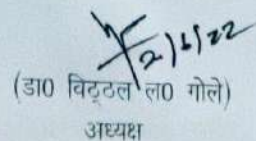 2/6/22
(डा0 विट्ठल ल0 गोले)
अध्यक्ष